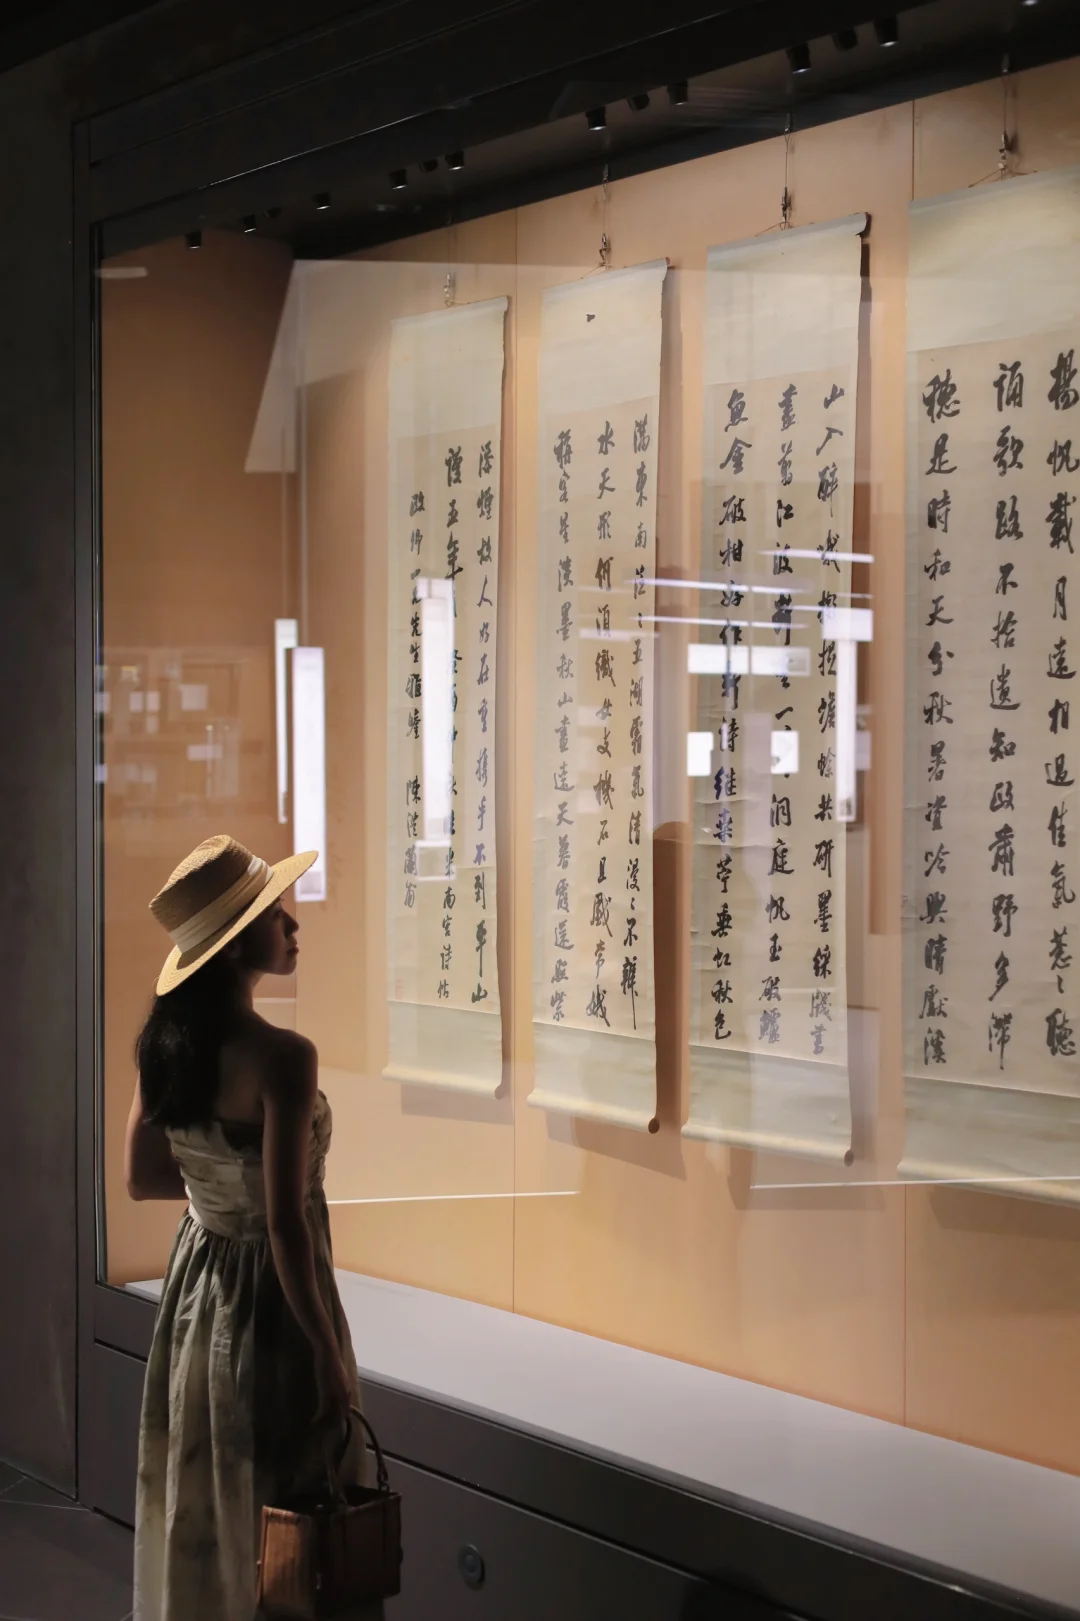 揚帆載月遠相過佳氣葱〃聽
誦歌路不拾遺知政肅野多滯
穗是時和天分秋暑資吟興晴獻溪
山入醉哦擬捉蟾蜍共研墨綵牋書
盡剪江波 一 洞庭帆玉破鱸
魚金破柑好作新詩繼桑苧垂虹秋色
滿東南泛〃五湖霜氣清漫〃不辨
水天形何須織女支機石且戲常娥
稱客星淡墨秋山畫遠天暮霞還照紫
添煙故人好在重攜手不到平山
謾五年 米南宮詩帖
先生雅 陳